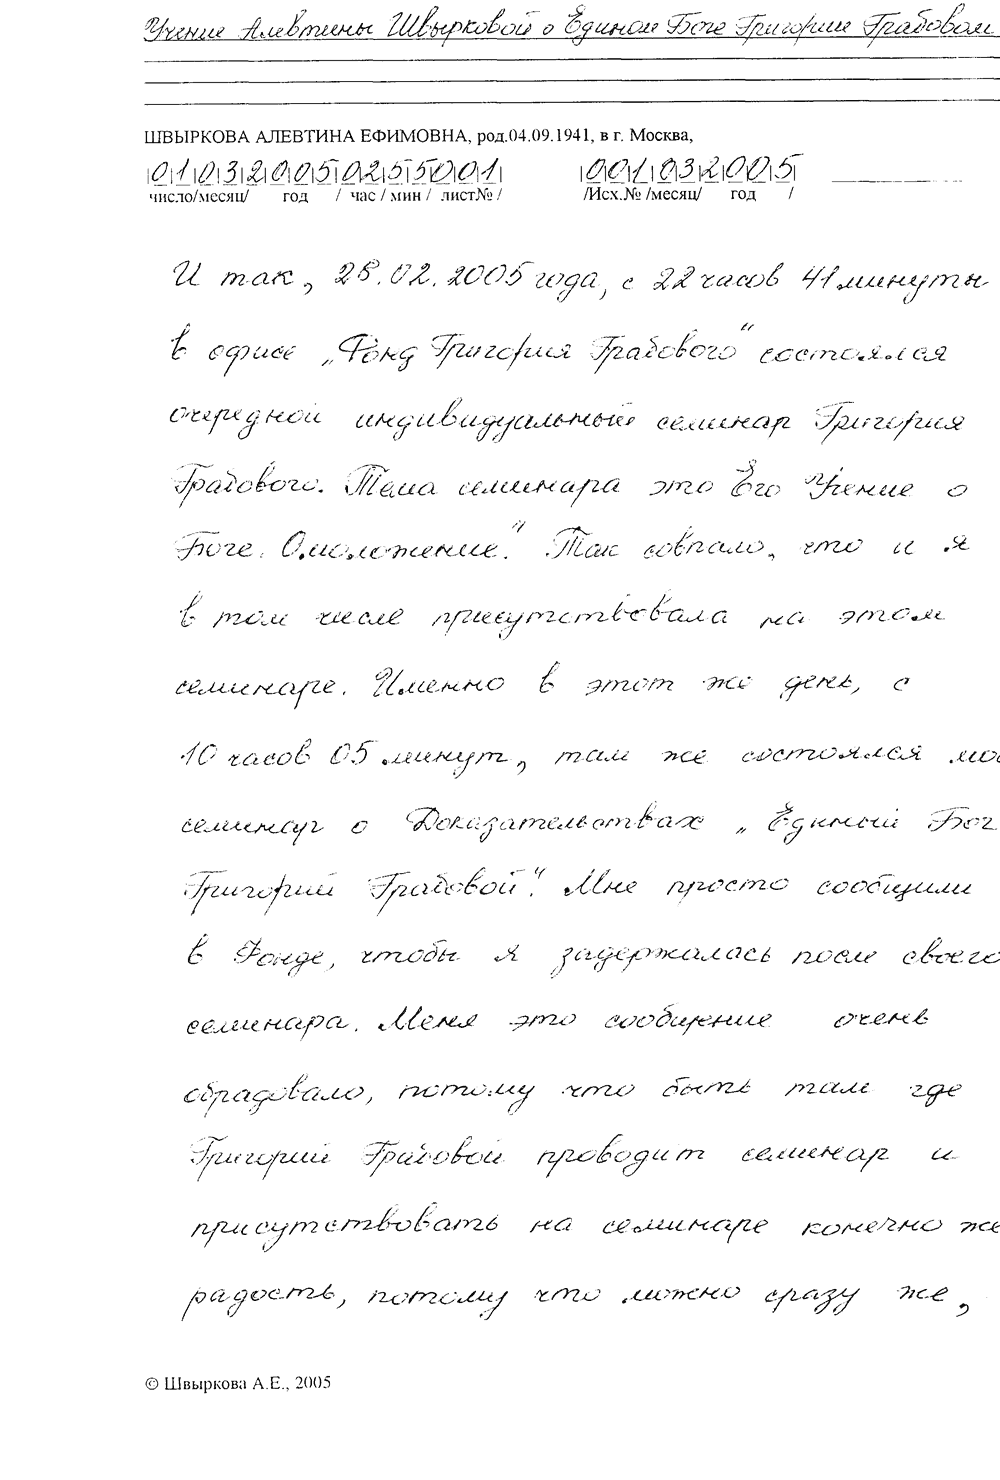 Учение Алевтины Швырковой о Едином Боге Григории Грабовом
ШВЫРКОВА АЛЕВТИНА ЕФИМОВНА, род.04.09.1941, в г. Москва,
|0|1|0|3|2|0|0|5|0|2|5|5|0|0|1| |0|0|1|0|3|2|0|0|5|
число/месяц/ год / час / мин / лист№ / /Исх.№ /месяц/ год /
И так, 28.02.2005 года, с 22 часов 41 минуты
в офисе „Фонд Григория Грабового" состоялся
очередной индивидуальный семинар Григория
Грабового. Тема семинара это Его Учение о
Боге. Омоложение." Так совпало, что и я
в том числе присутствовала на этом
семинаре. Именно в этот же день, с
10 часов 05 минут, там же состоялся мо
семинар о Доказательствах „Единый Бог
Григорий Грабовой". Мне просто сообщили
в Фонде, чтобы я задержалась после своего
семинара. Меня это сообщение очень
обрадовало, потому что быть там где
Григорий Грабовой проводит семинар и
присутствовать на семинаре конечно же
радость, потому что можно сразу же,
© Швыркова А.Е., 2005